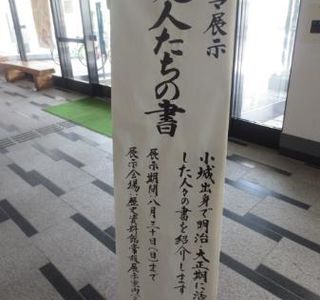 マ展示
人たちの書
小城出身で明治、大正期に活
した人々の書を紹介します
展示期間:八月三十日(日)まで
展示会場:歴史資料館常設展示室内